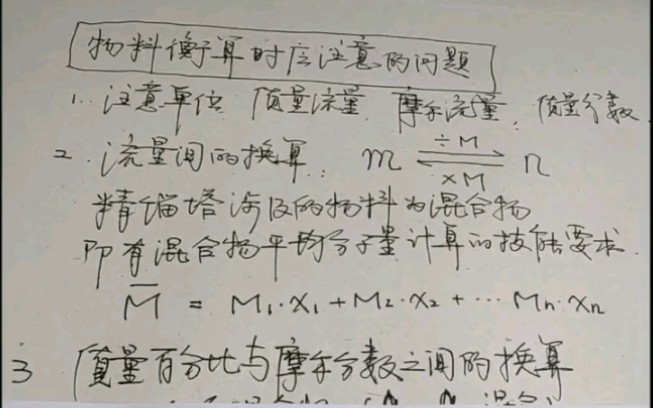 物料衡算时应注意的问题
1. 注意单位 质量流量, 摩尔流量, 质量分数
2. 流量间的换算: m ÷M ⇌ ×M n
精馏塔涉及的物料为混合物
即有混合物平均分子量计算的技能要求.
M̅ = M₁·x₁ + M₂·x₂ + ⋯ Mn·xn
3 质量百分比与摩尔分数之间的换算